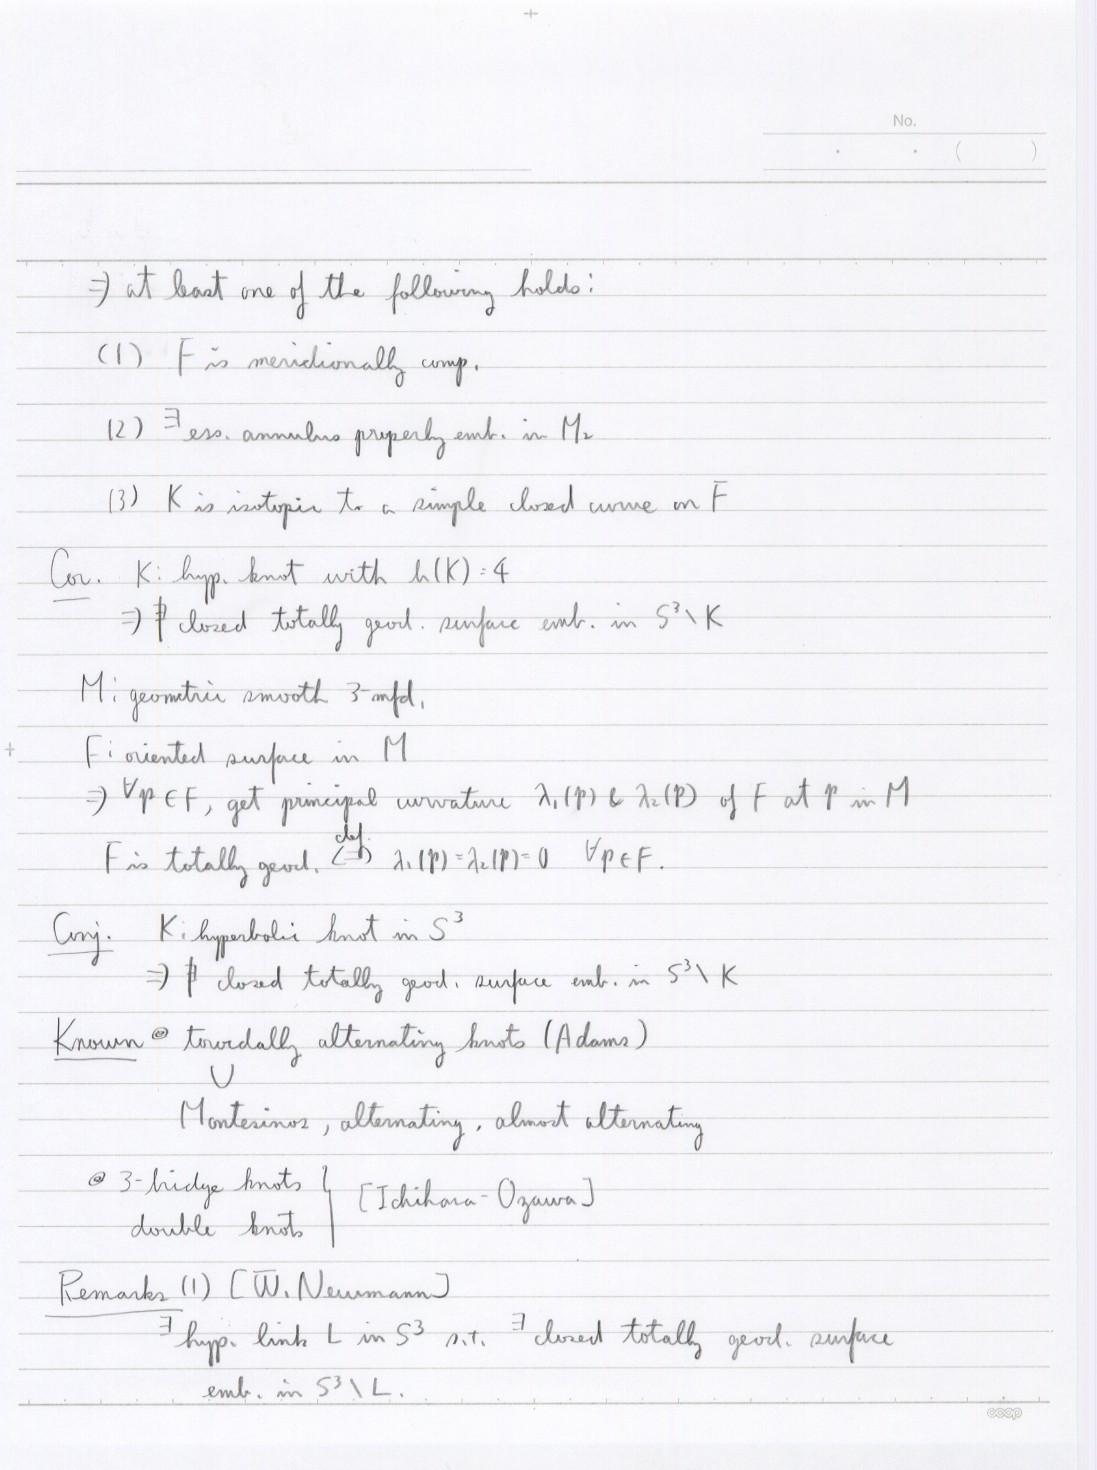 No.
. . ( )
⇒ at least one of the following holds:
(1) F is meridionally comp.
(2) ∃ ess. annulus properly emb. in M₂
(3) K is isotopic to a simple closed curve on F
Cor. K: hyp. knot with h(K)=4
⇒ ∄ closed totally geod. surface emb. in S³∖K
M: geometric smooth 3-mfd,
F: oriented surface in M
⇒ ∀p∈F, get principal curvature λ₁(p) & λ₂(p) of F at p in M
F is totally geod. ⇔ def. λ₁(p)=λ₂(p)=0 ∀p∈F.
Conj. K: hyperbolic knot in S³
⇒ ∄ closed totally geod. surface emb. in S³∖K
Known ◎ toroidally alternating knots (Adams)
∪
Montesinos, alternating, almost alternating
◎ 3-bridge knots
double knots } [Ichihara-Ozawa]
Remarks (1) [W. Neumann]
∃ hyp. link L in S³ s.t. ∃ closed totally geod. surface
emb. in S³∖L.
coop